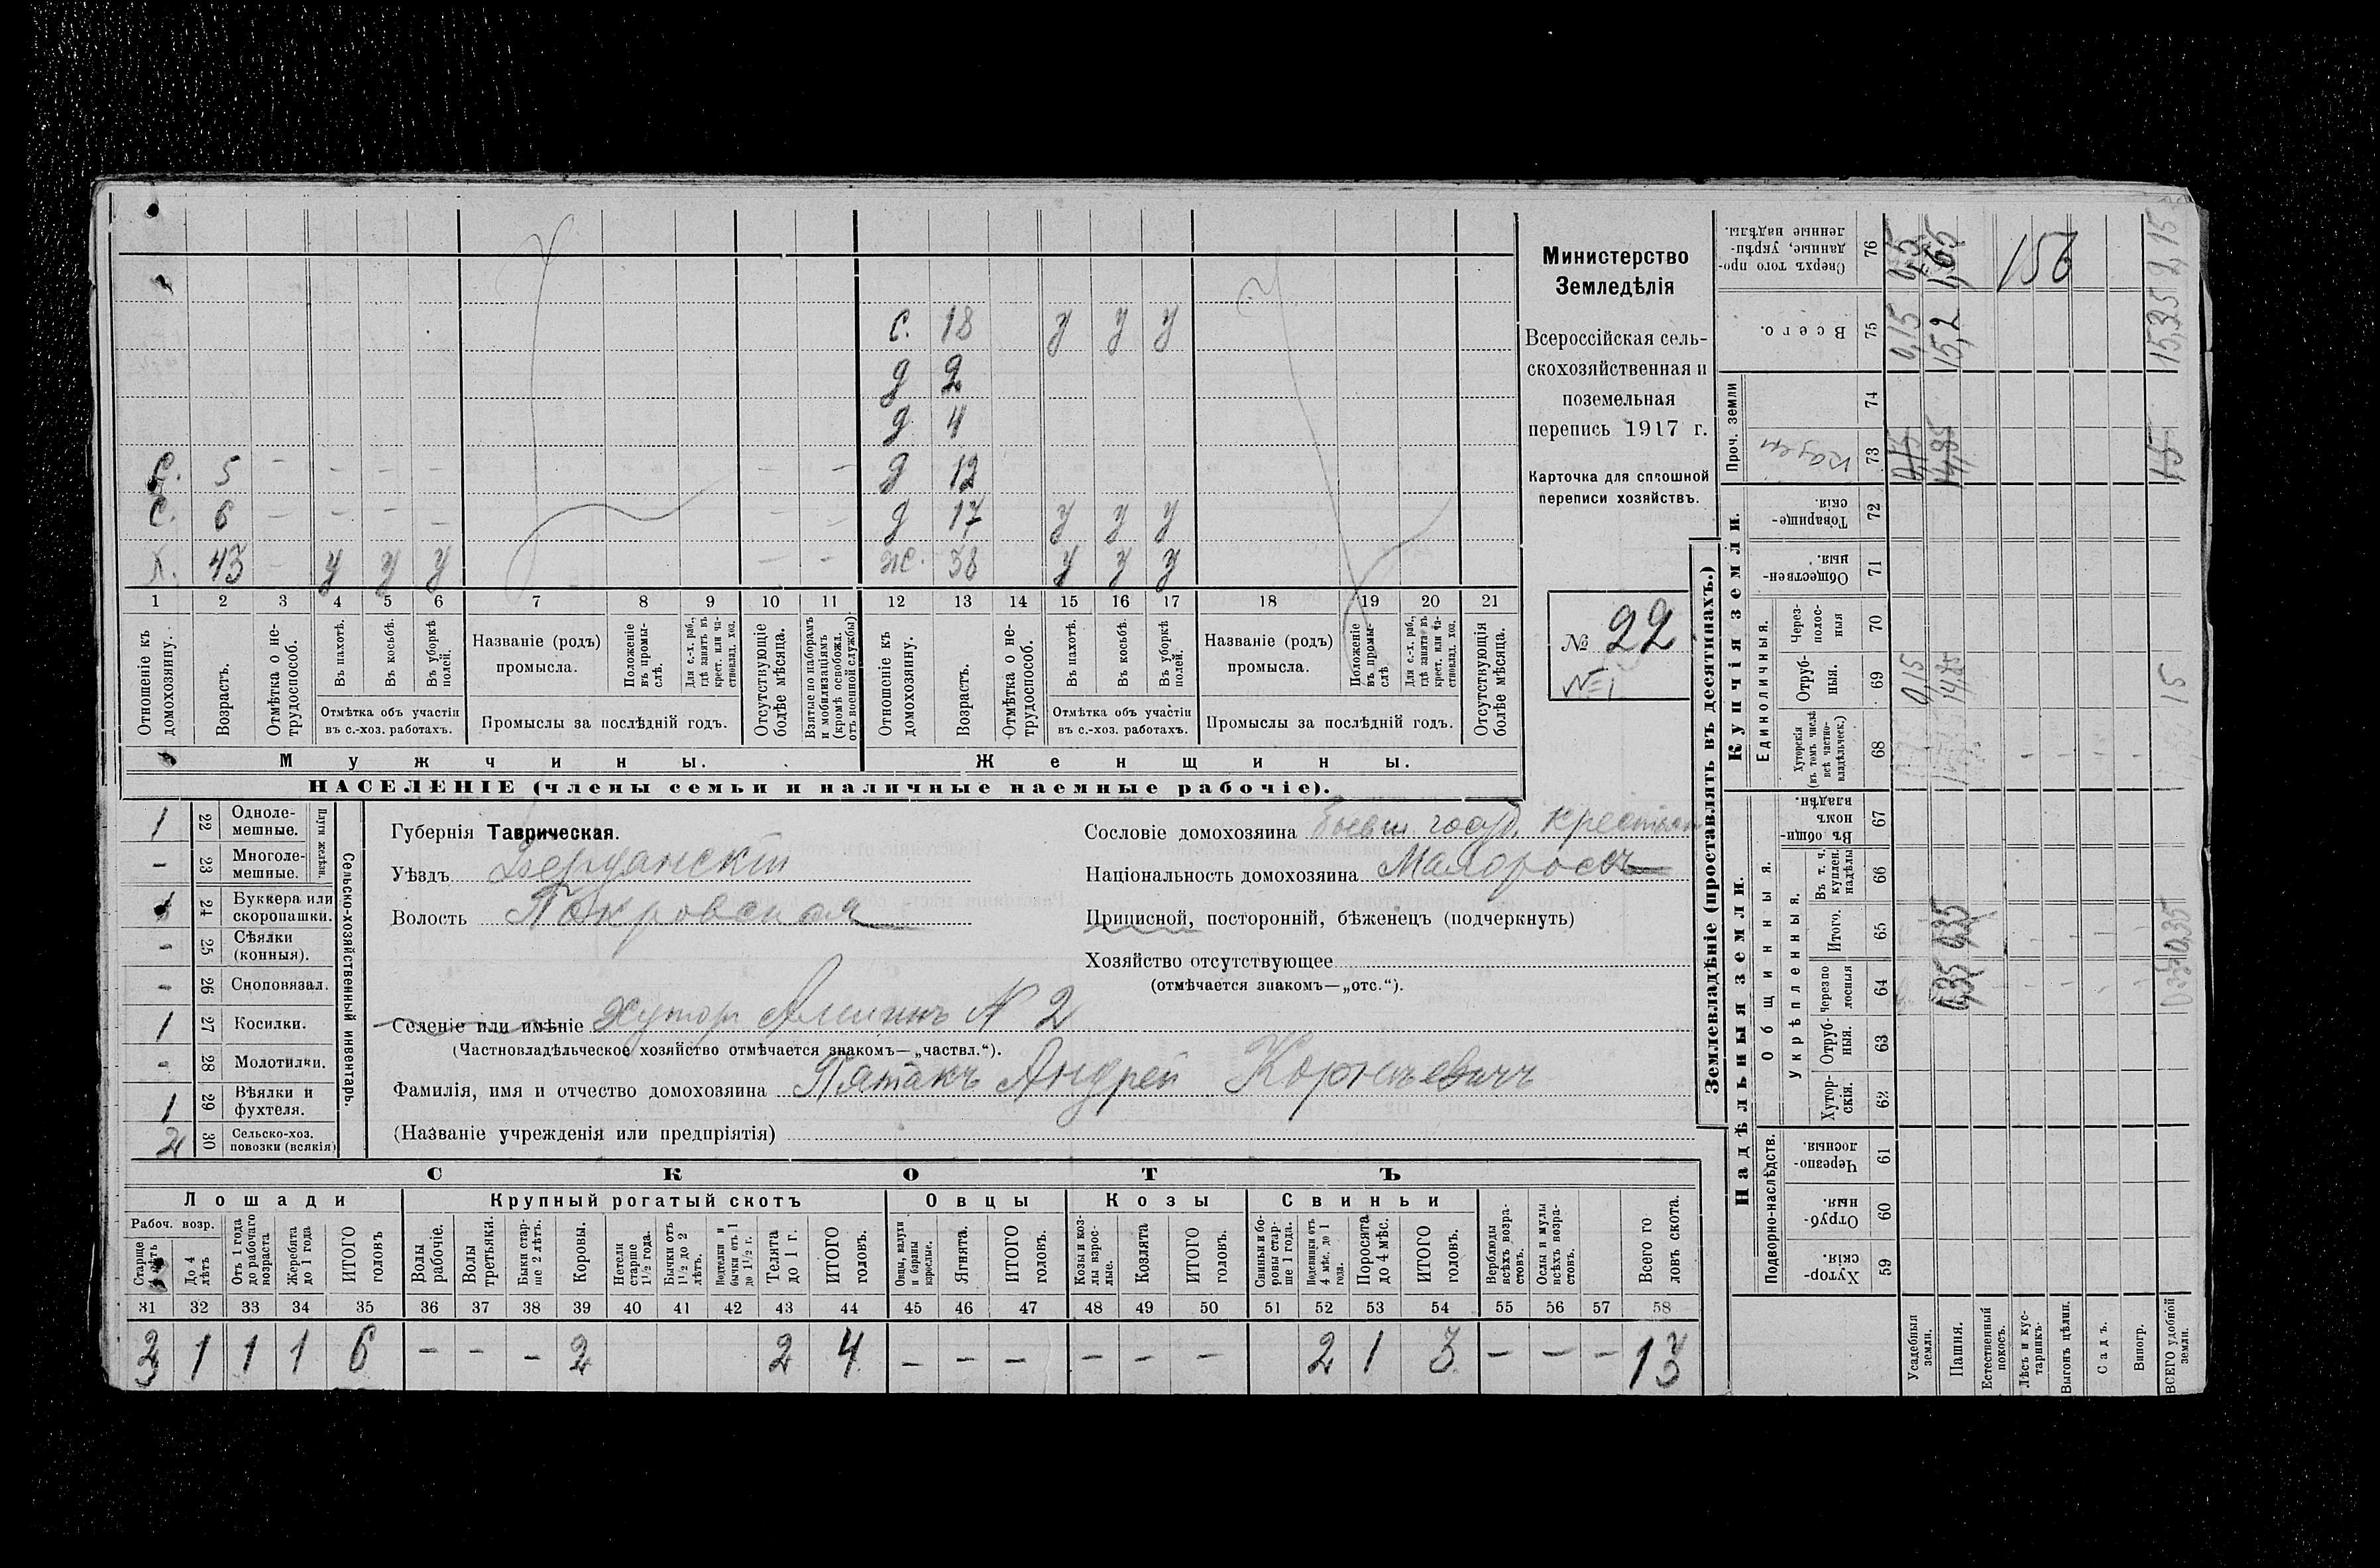 С. 18 у у у
д 2
д 4
С. 5 - - - - - - д 12
С. 6 - - - - - - д 17 у у у
Х. 43 - у у у - - ж. 38 у у у
1 2 3 4 5 6 7 8 9 10 11 12 13 14 15 16 17 18 19 20 21
Отношеніе къ домохозяину.
Возрастъ.
Отмѣтка о не-трудоспособ.
Въ пахотѣ.
Въ косьбѣ.
Въ уборкѣ полей.
Отмѣтка объ участіи
въ с.-хоз. работахъ.
Названіе (родъ)
промысла.
Положеніе въ промы-слѣ.
Для с.-х. раб., гдѣ занятъ въ крест. или ча-стновлад. хоз.
Промыслы за послѣдній годъ.
Отсутствующіе болѣе мѣсяца.
Взятые по наборамъ и мобилизаціямъ (кромѣ освобожд. отъ военной службы)
Отношеніе къ домохозяину.
Возрастъ.
Отмѣтка о не-трудоспособ.
Въ пахотѣ.
Въ косьбѣ.
Въ уборкѣ полей.
Отмѣтка объ участіи
въ с.-хоз. работахъ.
Названіе (родъ)
промысла.
Положеніе въ промы-слѣ
Для с.-х. раб., гдѣ занята въ крест. или ча-стновлад. хоз.
Промыслы за послѣдній годъ.
Отсутствующія болѣе мѣсяца.
Мужчины. Женщины.
НАСЕЛЕНІЕ (члены семьи и наличные наемные рабочіе).
Министерство
Земледѣлія
Всероссійская сель-
скохозяйственная и
поземельная
перепись 1917 г.
Карточка для сплошной
переписи хозяйствъ.
№ 22
№ 1
1 22 Одноле-мешные.
- 23 Многоле-мешные.
Плуги желѣзн.
1 24 Буккера или скоропашки.
- 25 Сѣялки (конныя).
- 26 Сноповязал.
1 27 Косилки.
- 28 Молотилки.
1 29 Вѣялки и фухтеля.
2 30 Сельско-хоз. повозки (всякія)
Сельско-хозяйственный инвентарь.
Губернія Таврическая.
Уѣздъ Бердянскій
Волость Покровская
Сословіе домохозяина бывш. госуд. крестьян
Національность домохозяина Малороссъ
Приписной, посторонній, бѣженецъ (подчеркнуть)
Хозяйство отсутствующее
(отмѣчается знакомъ—„отс.“).
Селеніе или имѣніе Хуторъ № 2
(Частновладѣльческое хозяйство отмѣчается знакомъ—„частвл.“).
Фамилія, имя и отчество домохозяина Пятакъ Андрей Корнѣевичъ
(Названіе учрежденія или предпріятія)
СКОТЪ
Лошади Крупный рогатый скотъ Овцы Козы Свиньи
Рабоч. возр.
Старше 4 лѣтъ
До 4 лѣтъ
Отъ 1 года до рабочаго возраста
Жеребята до 1 года
ИТОГО головъ
Волы рабочіе.
Волы третьяки.
Быки стар-ше 2 лѣтъ.
Коровы.
Нетели старше 1½ года.
Бычки отъ 1½ до 2 лѣтъ.
Подтелки и бычки отъ 1 до 1½ г.
Телята до 1 г.
ИТОГО головъ.
Овцы, валухи и бараны взрослые.
Ягнята.
ИТОГО головъ.
Козы и коз-лы взрос-лые.
Козлята
ИТОГО головъ.
Свиньи и бо-ровы стар-ше 1 года.
Подсвинки отъ 4 мѣс. до 1 года.
Поросята до 4 мѣс.
ИТОГО головъ.
Верблюды всѣхъ возра-стовъ.
Ослы и мулы всѣхъ возра-стовъ.
Всего го ловъ скота.
31 32 33 34 35 36 37 38 39 40 41 42 43 44 45 46 47 48 49 50 51 52 53 54 55 56 57 58
3 1 1 1 6 - - - 2 2 4 - - - - - - 2 1 3 - - - 13
Землевладѣніе (проставлять въ десятинахъ.)
Надѣльныя земли. Купчія земли. Проч. земли
Подворно-наслѣдств.
Общинныя.
Укрѣпленныя.
Единоличныя.
Сверхъ того про-данные, укрѣп-ленные надѣлы. 76 0,15 1,65 156 2,15
Всего. 75 0,15 15,2 15,35
74
73 0,15 14,85 15
Товарище-скія. 72
Обществен-ныя. 71
Через-полос-ныя 70
Отруб-ныя. 69 0,15 14,85 15
Хуторскія (въ томъ числѣ всѣ частно-владѣльческ.) 68
Въ общин-номъ владѣн. 67
Въ т. ч. куплен. надѣлы 66
Итого. 65 0,35 0,35
Черезпо лосныя 64 0,35
Отруб-ныя. 63
Хутор-скія. 62
Черезпо-лосныя. 61
Отруб-ныя. 60
Хутор-скія. 59
Усадебныя земли.
Пашня.
Естественный покосъ.
Лѣсъ и кус-тарникъ.
Выгонъ цѣлин.
Садъ.
Виногр.
ВСЕГО удобной земли.